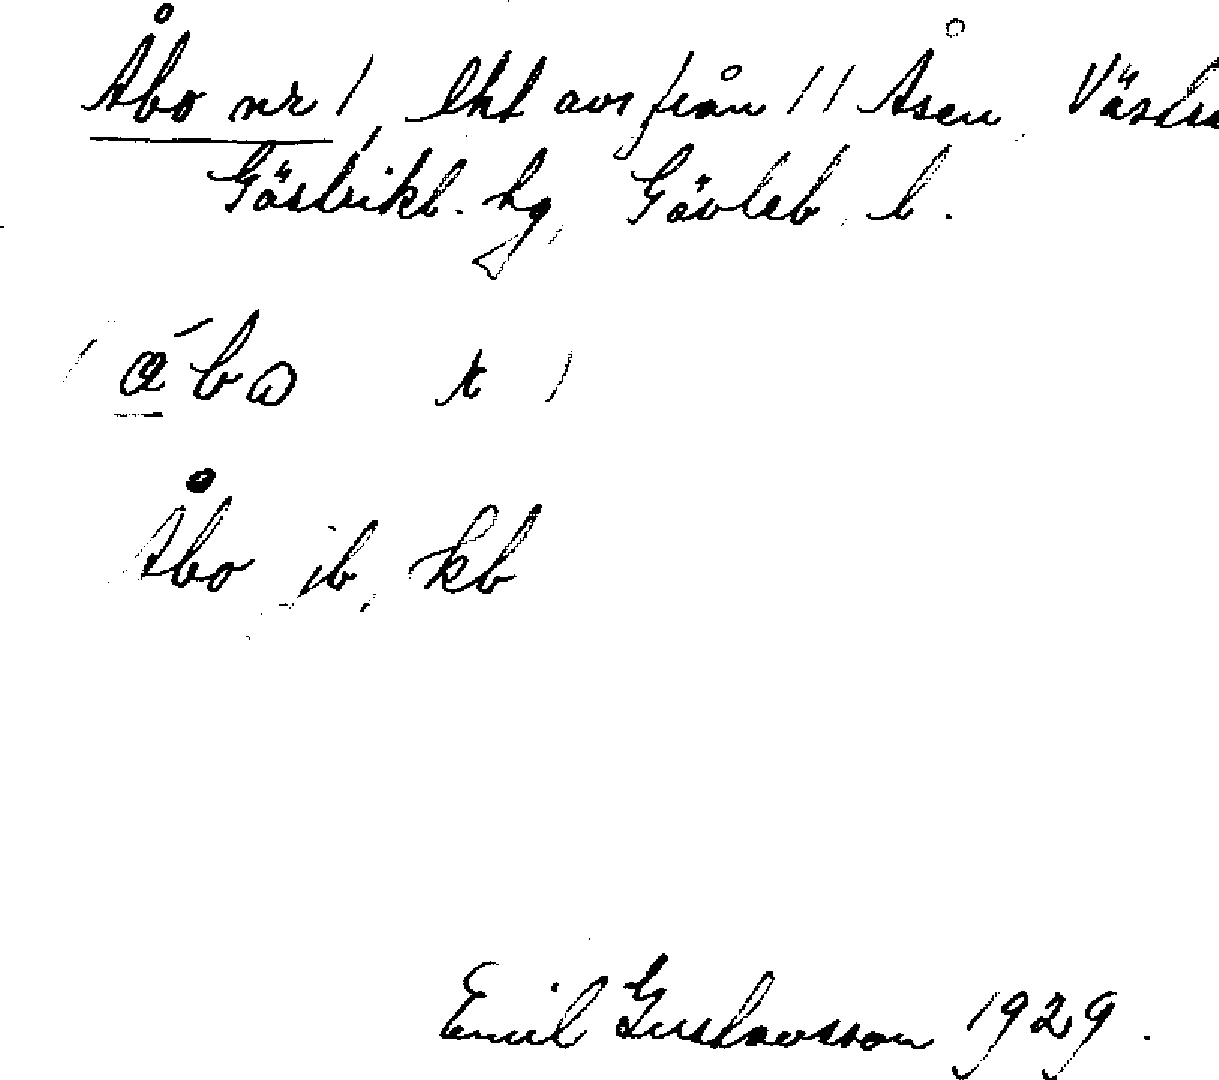 Åbo nr 1, lht avs från 11 Åsen, Västra
Gästrikl. hg, Gävleb. l.
ábo t
Åbo jb, kb
Emil Gustavsson 1929.